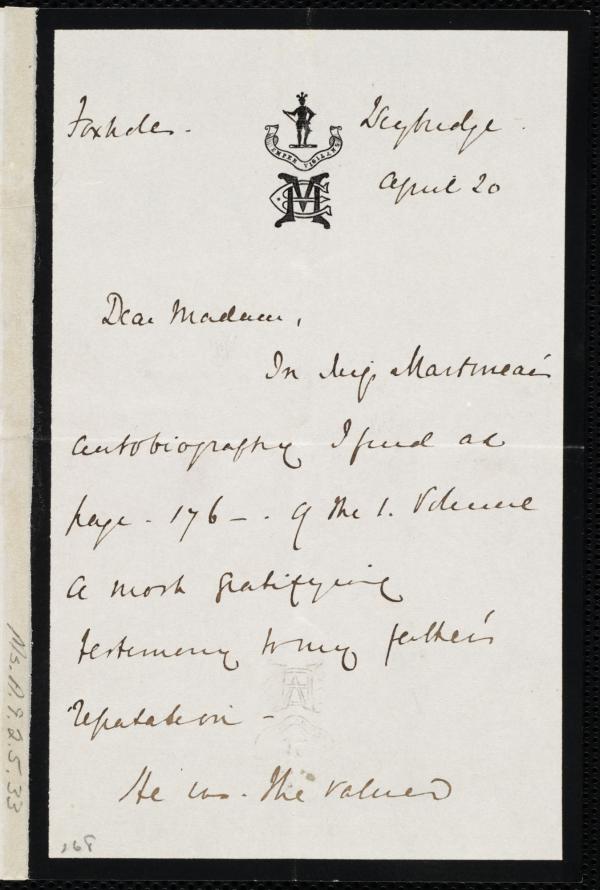 Foxholes. Weybridge.
SEMPER VIGILANS
April 20
Dear Madam,
In Miss Martineau's
autobiography I find at
page. 176 -. of the 1. Volume
a most gratifying
testimony to my father's
reputation -
He was. the valued
Ms. A. 9. 2. 5. 33
168